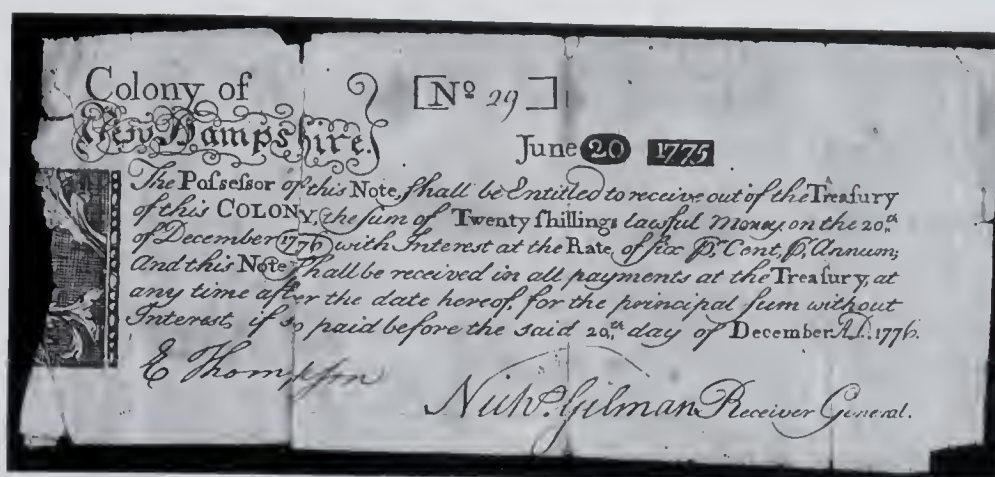 Colony of
New Hampshire.
[Nº 29]
June 20 1775
The Poſseſsor of this Note, ſhall be Entitled to receive out of the Treaſury
of this COLONY, the ſum of Twenty ſhillings lawful Money, on the 20.th
of December 1776, with Interest at the Rate, of ſix P. Cent, P. Annum;
And this Note ſhall be received in all payments at the Treaſury, at
any time after the date hereof, for the principal ſum without
Interest, if so paid before the said 20.th day of December A.D. 1776.
E Thompſon
Nichs. Gilman Receiver General.